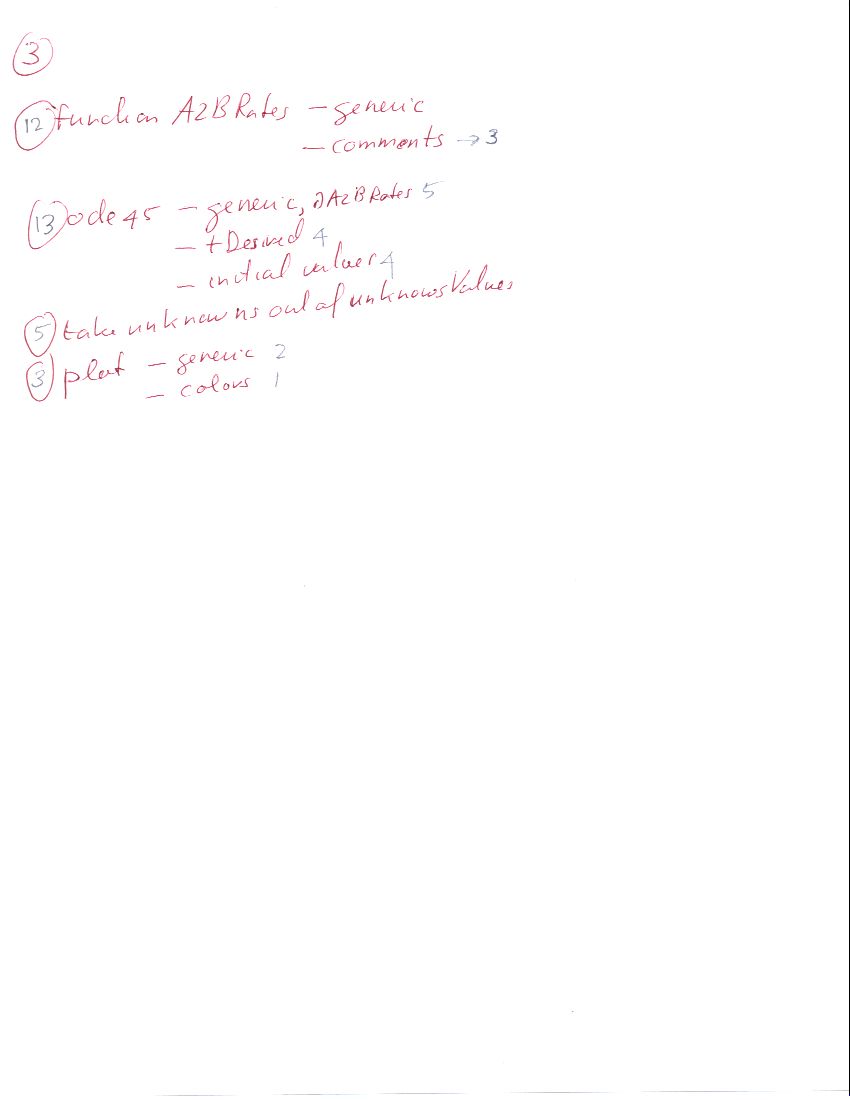 3
12 function A2BRates - generic
- comments → 3
13 ode45 - generic, @A2BRates 5
- tDesired 4
- initial values 4
5 take unknowns out of unknownsValues
3 plot - generic 2
- colors 1